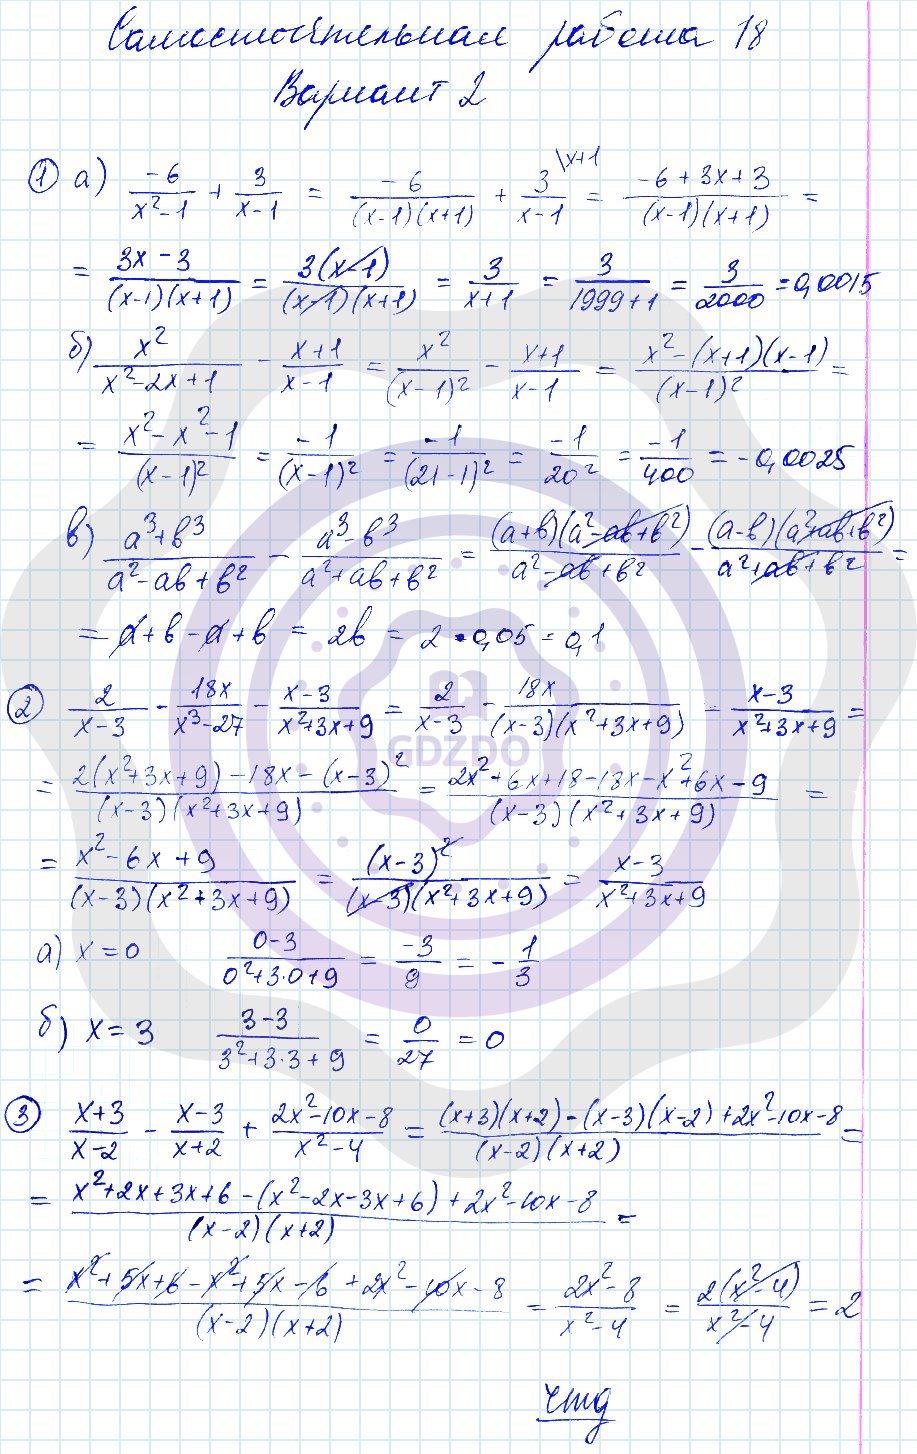 Самостоятельная работа 18
Вариант 2
① а) -6/(x²-1) + 3/(x-1) = -6/((x-1)(x+1)) + 3/(x-1) \x+1 = (-6+3x+3)/((x-1)(x+1)) =
= (3x-3)/((x-1)(x+1)) = 3(x-1)/((x-1)(x+1)) = 3/(x+1) = 3/(1999+1) = 3/2000 = 0,0015
б) x²/(x²-2x+1) - (x+1)/(x-1) = x²/(x-1)² - (x+1)/(x-1) = (x²-(x+1)(x-1))/(x-1)² =
= (x²-x²-1)/(x-1)² = -1/(x-1)² = -1/(21-1)² = -1/20² = -1/400 = -0,0025
в) (a³+b³)/(a²-ab+b²) - (a³-b³)/(a²+ab+b²) = (a+b)(a²-ab+b²)/(a²-ab+b²) - (a-b)(a²+ab+b²)/(a²+ab+b²) =
= a+b-a+b = 2b = 2·0,05 = 0,1
② 2/(x-3) - 18x/(x³-27) - (x-3)/(x²+3x+9) = 2/(x-3) - 18x/((x-3)(x²+3x+9)) - (x-3)/(x²+3x+9) =
GDZDO
= (2(x²+3x+9)-18x-(x-3)²)/((x-3)(x²+3x+9)) = (2x²+6x+18-18x-x²+6x-9)/((x-3)(x²+3x+9)) =
= (x²-6x+9)/((x-3)(x²+3x+9)) = (x-3)²/((x-3)(x²+3x+9)) = (x-3)/(x²+3x+9)
а) x=0 (0-3)/(0²+3·0+9) = -3/9 = -1/3
б) x=3 (3-3)/(3²+3·3+9) = 0/27 = 0
③ (x+3)/(x-2) - (x-3)/(x+2) + (2x²-10x-8)/(x²-4) = ((x+3)(x+2)-(x-3)(x-2)+2x²-10x-8)/((x-2)(x+2)) =
= (x²+2x+3x+6-(x²-2x-3x+6)+2x²-10x-8)/((x-2)(x+2)) =
= (x²+5x+6-x²+5x-6+2x²-10x-8)/((x-2)(x+2)) = (2x²-8)/(x²-4) = 2(x²-4)/(x²-4) = 2
чтд